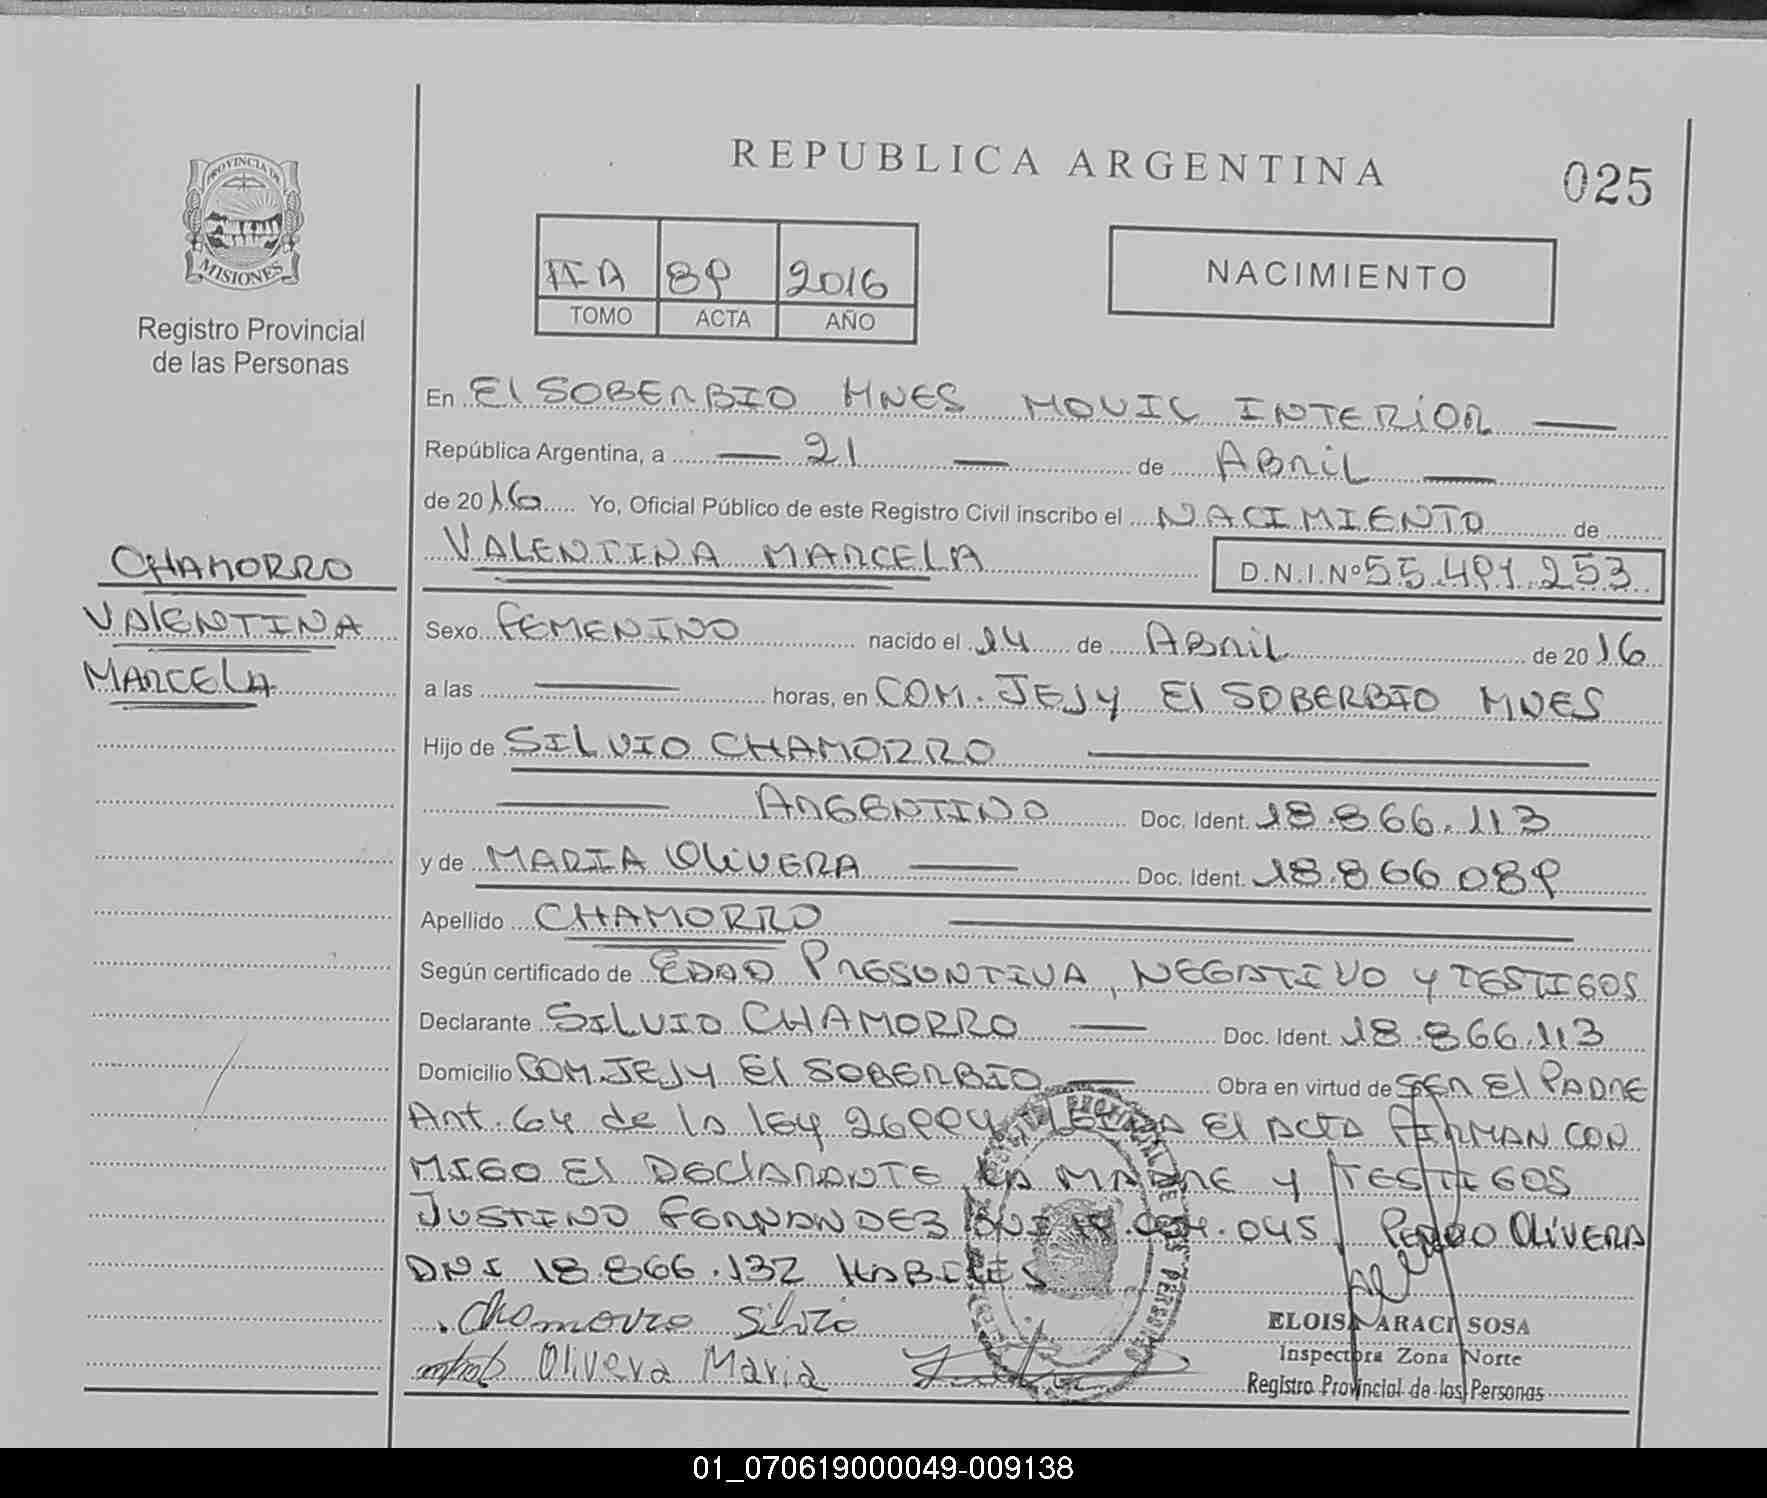 REPUBLICA ARGENTINA
025
PROVINCIA DE
MISIONES
Registro Provincial
de las Personas
IIA 89 2016
TOMO ACTA AÑO
NACIMIENTO
En El SOBERBIO MNES MOVIL INTERIOR
República Argentina, a 21 de ABRIL
de 2016 Yo, Oficial Público de este Registro Civil inscribo el NACIMIENTO de
VALENTINA MARCELA D.N.I.Nº 55.491.253
CHAMORRO
VALENTINA
MARCELA
Sexo FEMENINO nacido el 14 de ABRIL de 2016
a las horas, en COM. JEJY El SOBERBIO MNES
Hijo de SILVIO CHAMORRO
ARGENTINO Doc. Ident. 18.866.113
y de MARIA OLIVERA Doc. Ident. 18.866 089
Apellido CHAMORRO
Según certificado de EDAD PRESUNTIVA, NEGATIVO y TESTIGOS
Declarante SILVIO CHAMORRO Doc. Ident. 18.866.113
Domicilio COM. JEJY El SOBERBIO Obra en virtud de SER El PADRE
Art. 64 de la ley 26994 LEIDA El ACTA FIRMAN CON
MIGO El DEClARANTE, LA MADRE y TESTIGOS
JUSTINO FERNANDEZ DNI .045 PEDRO OLIVERA
DNI 18.866.132 HABILES
Chamorro Silvio
Olivera Maria
ELOISA ARACI SOSA
Inspectora Zona Norte
Registro Provincial de las Personas
01_070619000049-009138